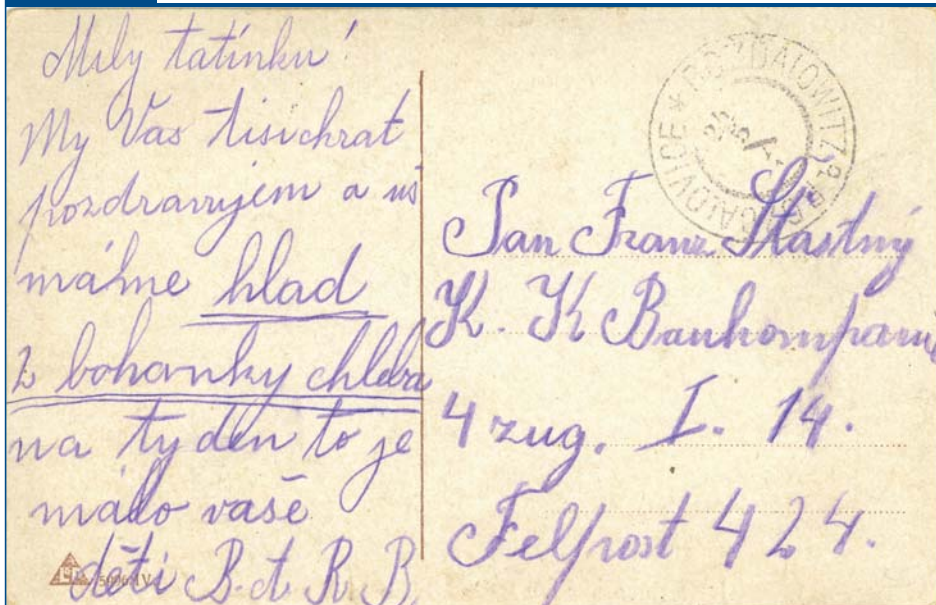 Mily tatínku!
My Vas tisickrat
pozdravujem a uš
máme hlad
2 bohanky chleba
na tyden to je
málo vaše
děti B. A. R. B.
Pan Franz Štastný
K. K Baukompanie
4 zug. I. 14.
Felpost 424.